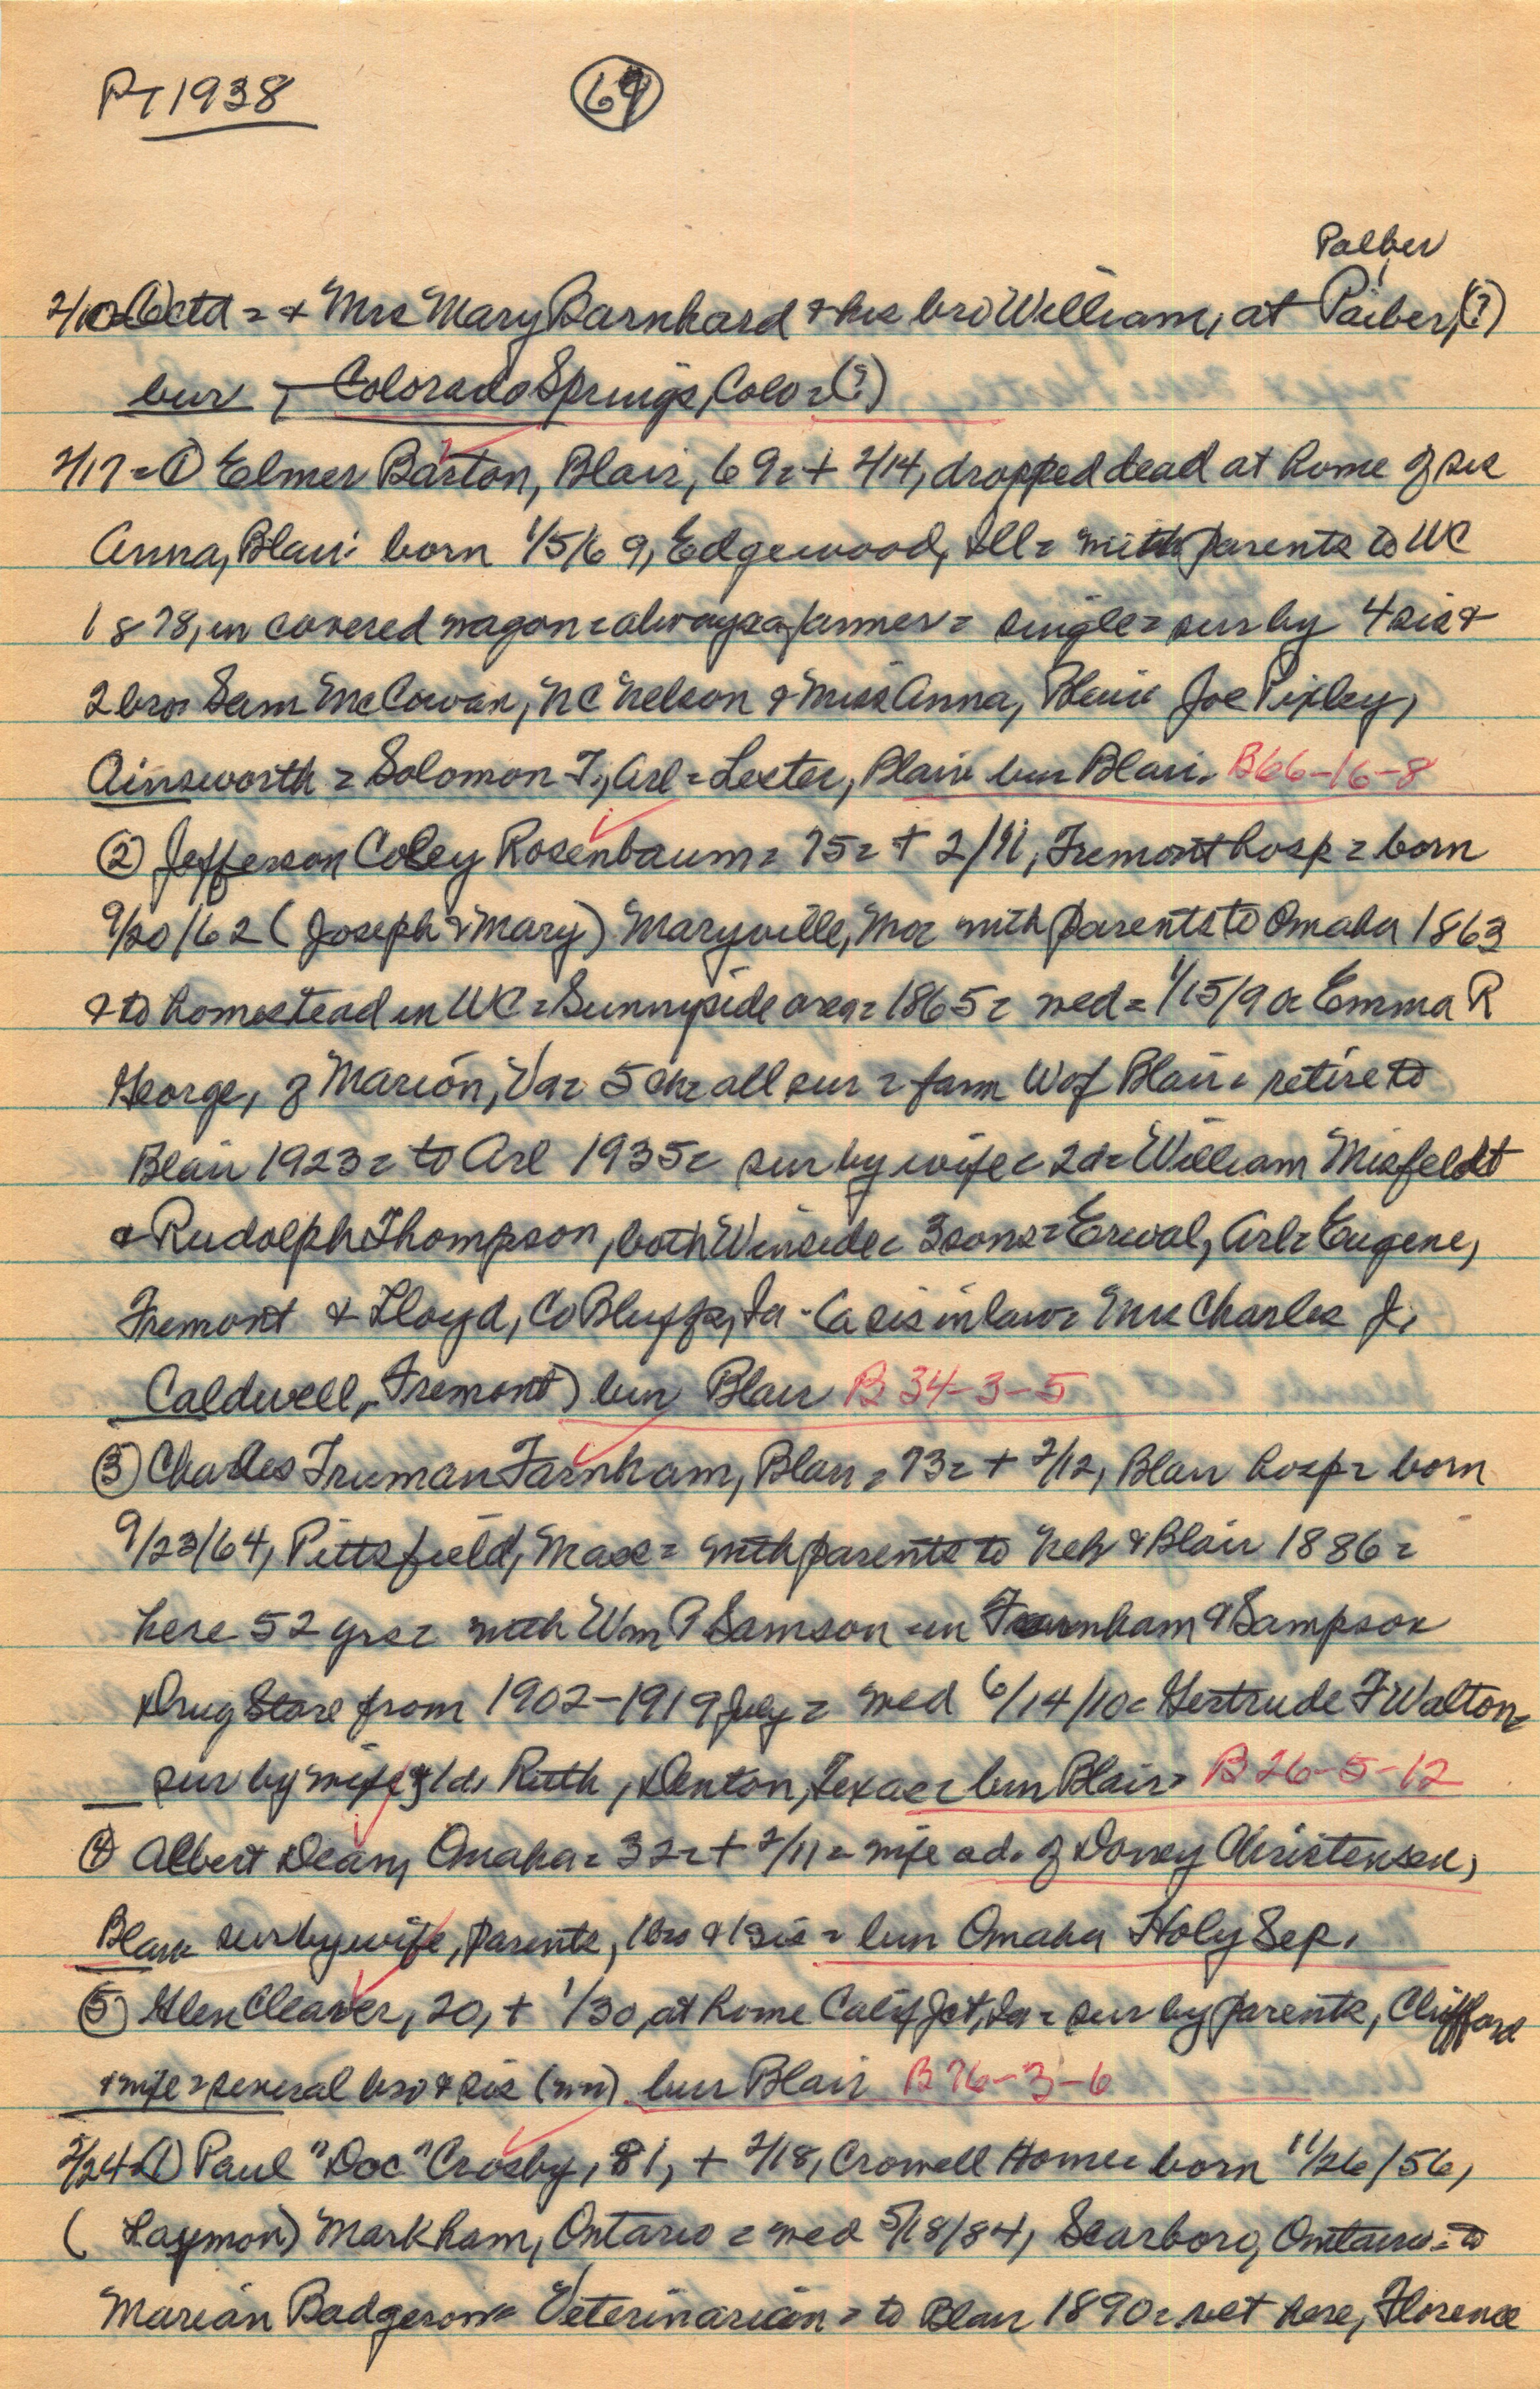 PT 1938
69
Palber
2/10 = Cctd = + Mrs Mary Barnhard & his bro William, at Paiber, (?)
bur, Colorado Springs, Colo = (?)
2/17 = ① Elmer Barton, Blair, 69 = + 2/14, dropped dead at home of sis
Anna, Blair = born 1/5/69, Edgewood, Ill = with parents to WC
1878, in covered wagon = always a farmer = single = sur by 4 sis &
2 bro = Sam McCowan, NC Nelson & Miss Anna, Blair = Joe Pixley,
Ainsworth = Solomon T., Arl = Lester, Blair = bur Blair. B66-16-8
② Jefferson Coley Rosenbaum = 75 = + 2/11, Fremont hosp = born
9/20/62 (Joseph & Mary) Maryville, Mo = with parents to Omaha 1863
& to homestead in WC = Sunnyside area = 1865 = wed = 1/15/90 Emma R
George, of Marion, Va = 5 ch = all sur = farm W of Blair = retire to
Blair 1923 = to Arl 1935 = sur by wife = 2d = William Misfeldt
& Rudolph Thompson, both Winside = 3 sons = Erwal, Arl = Eugene,
Fremont & Lloyd, Co Bluffs, Ia - (a sis in law = Mrs Charles J.
Caldwell, Fremont) bur Blair B 34-3-5
③ Charles Truman Farnham, Blair = 73 = + 2/12, Blair hosp = born
9/23/64, Pittsfield, Mass = with parents to Neb & Blair 1886 =
here 52 yrs = with Wm P Samson in Farnham & Sampson
Drug Store from 1902-1919 July = wed 6/14/10 = Gertrude F Walton =
sur by wife & 1 d. Ruth, Denton, Texas = bur Blair = B 26-5-12
④ Albert Dean, Omaha = 32 = + 2/11 = wife a d. of Dorsey Christensen,
Blair sur by wife, parents, 1 bro & 1 sis = bur Omaha Holy Sep.
⑤ Glen Cleaver, 20, + 1/30, at home Calif Jct, Ia = sur by parents, Clifford
& wife = several bro & sis (nn) bur Blair B 76-3-6
2/24 = ① Paul "Doc" Crosby, 81, + 2/18, Crowell Home = born 11/26/56,
( Laymon) Markham, Ontario = wed 5/18/84, Scarboro, Ontario = to
Marian Badgerow = Veterinarian = to Blair 1890 = vet here, Florence